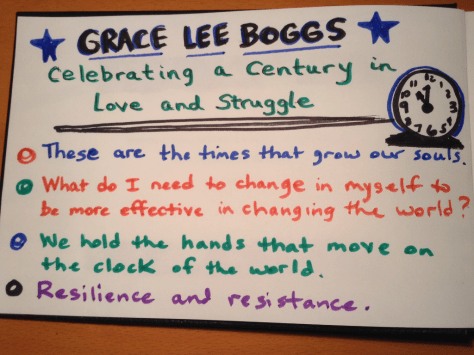 GRACE LEE BOGGS
Celebrating a Century in
Love and Struggle
12 1 2 3 4 5 6 7 8 9 10 11
These are the times that grow our souls.
What do I need to change in myself to
be more effective in changing the world?
We hold the hands that move on
the clock of the world.
Resilience and resistance.